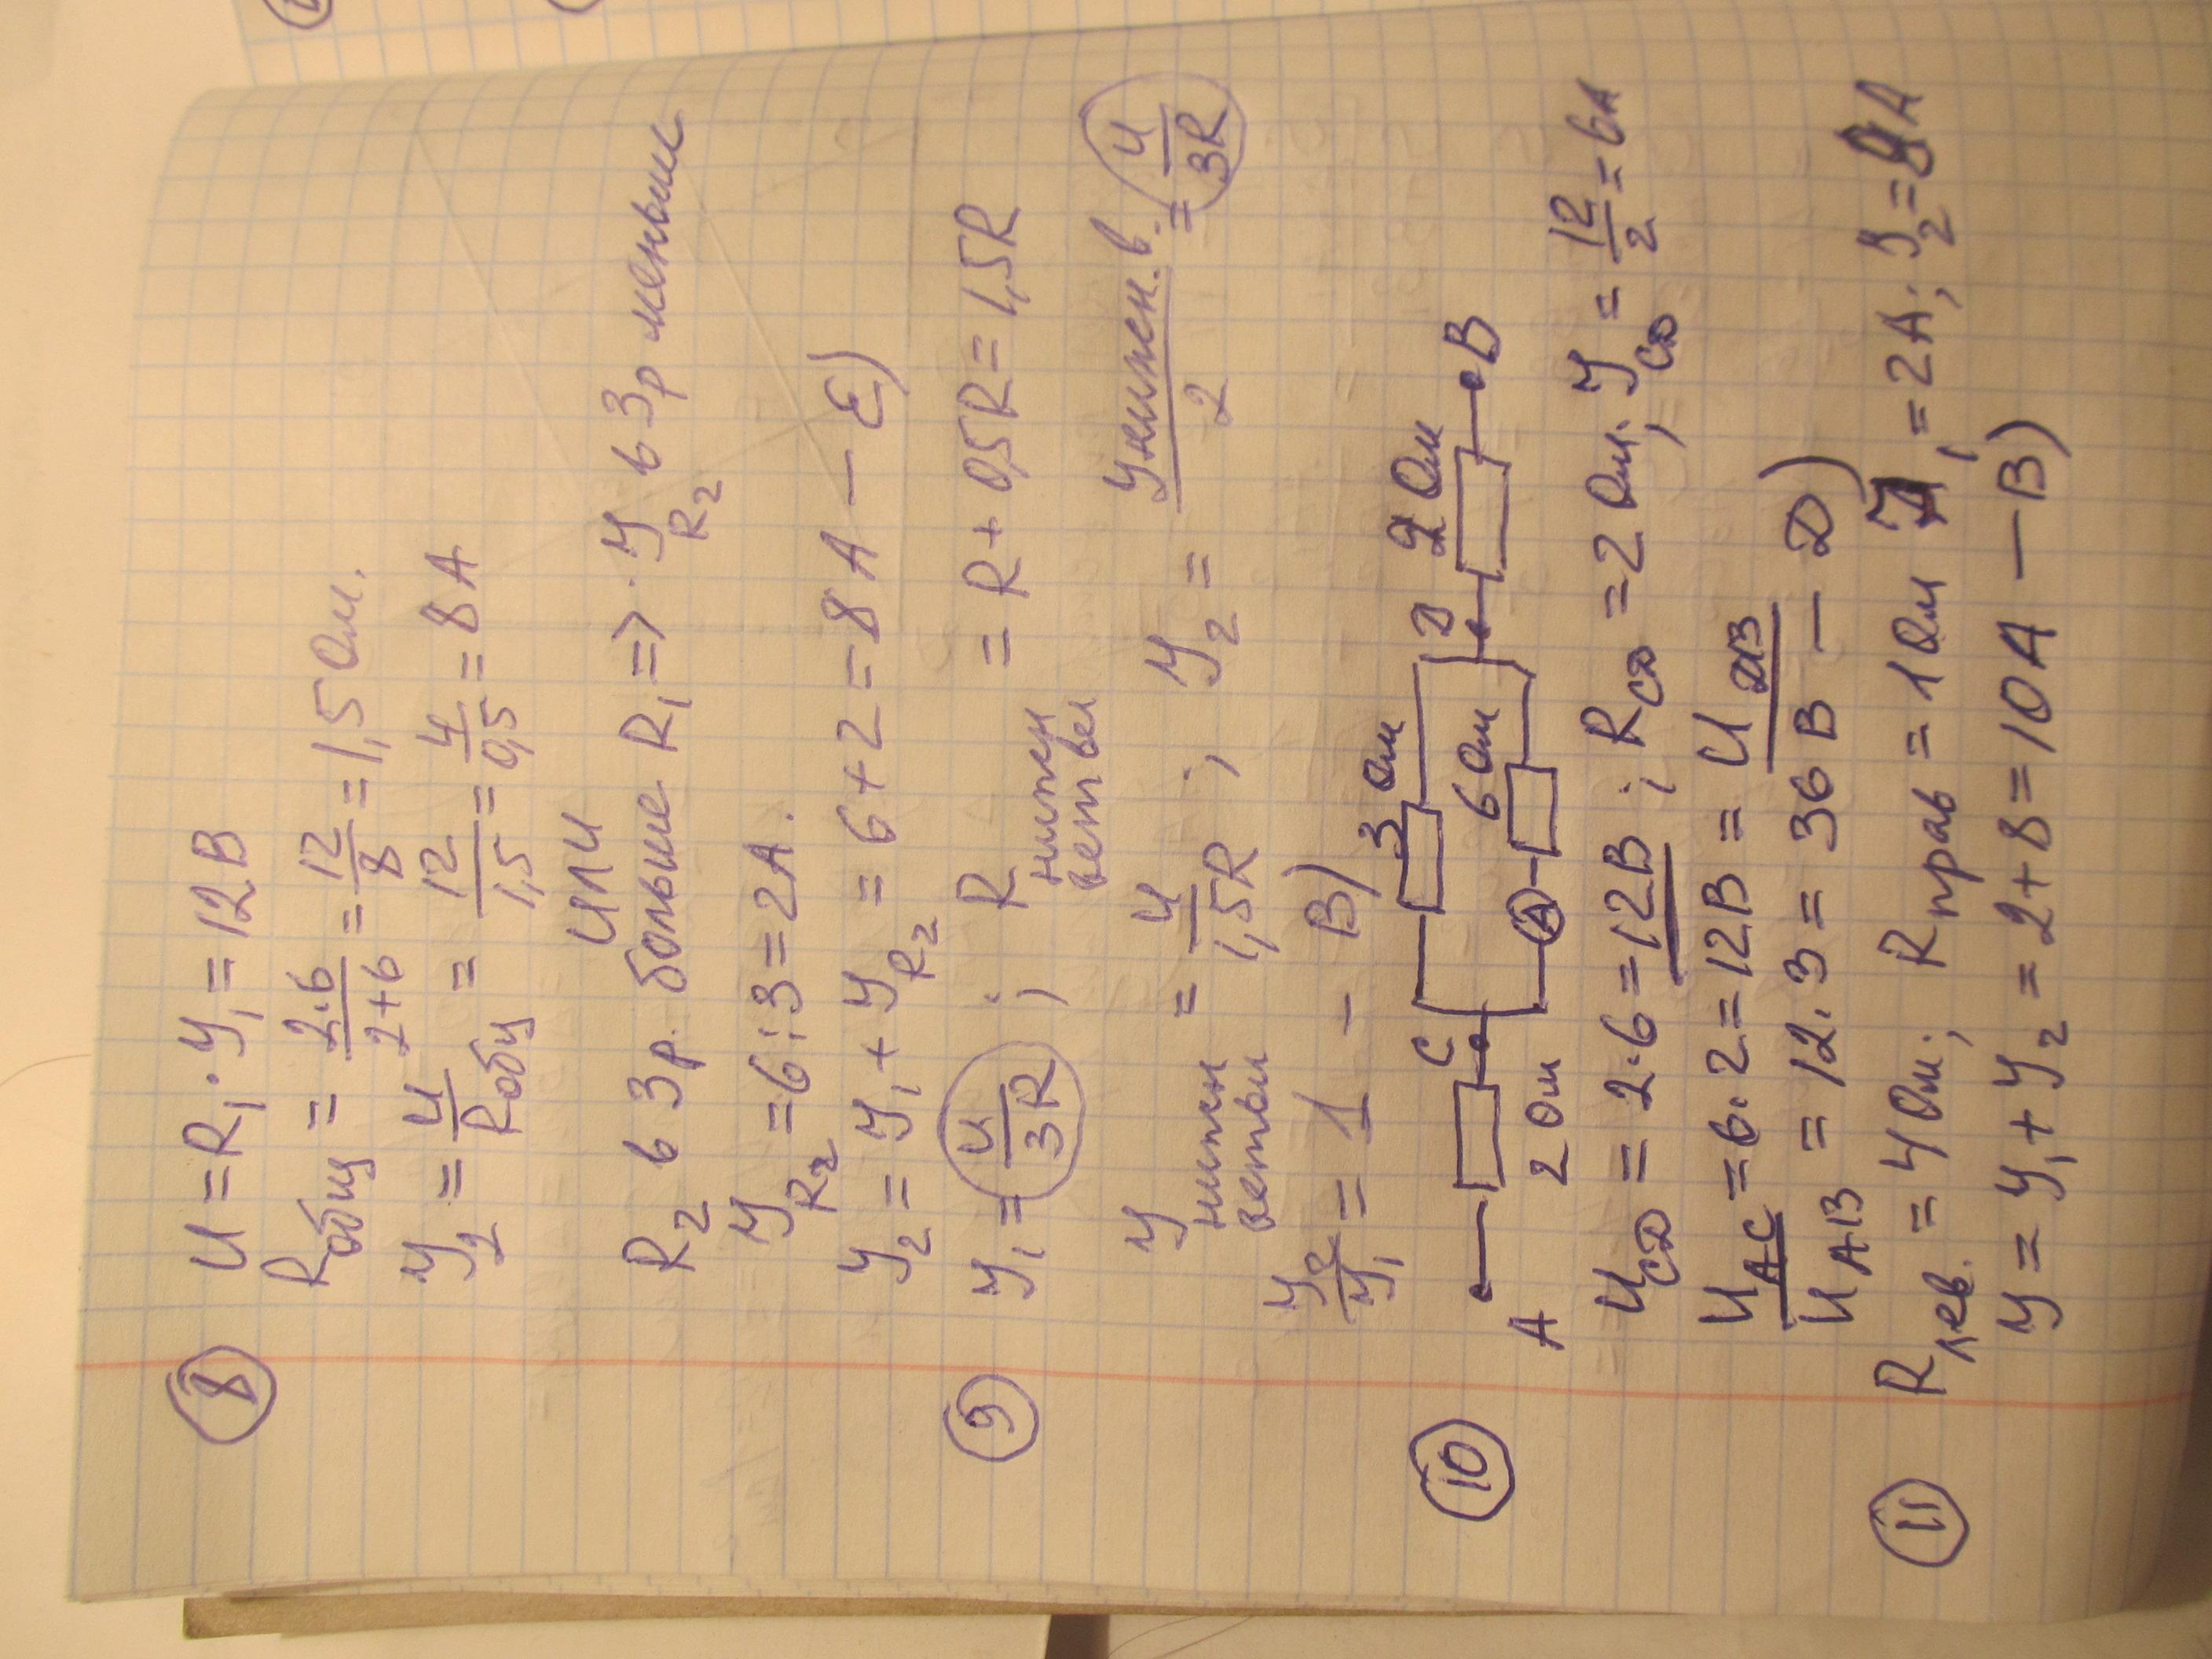 8 U = R₁ · У₁ = 12В
Rобщ = 2·6/2+6 = 12/8 = 1,5 Ом.
У₂ = U/Rобщ = 12/1,5 = 4/0,5 = 8А
или
R₂ в 3р. больше R₁ => У R₂ в 3р меньше
У R₂ = 6 : 3 = 2А.
У₂ = У₁ + У R₂ = 6 + 2 = 8А — Е)
9 У₁ = U/3R ; R нижней ветви = R + 0,5R = 1,5R
У нижней ветви = U/1,5R ; У₂ = У нижней в./2 = U/3R
У₂/У₁ = 1 — В)
10 A 2 Ом C 3 Ом A 6 Ом D 2 Ом В
U CD = 2·6 = 12В ; R CD = 2 Ом; У CD = 12/2 = 6А
U AC = 6·2 = 12В = U DB
U AB = 12·3 = 36В — D)
11 R лев. = 4 Ом; R прав = 1 Ом У₁ = 2А; У₂ = 8А
У = У₁ + У₂ = 2 + 8 = 10А — В)